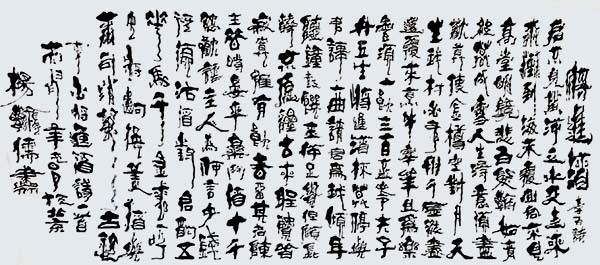 將進酒 李白詩
君不見黃河之水天上來
奔流到海不復回君不見
高堂明鏡悲白髮朝如青
絲暮成雪人生得意須盡
歡莫使金樽空對月天
生我材必有用千金散盡
還復來烹羊宰牛且為樂
會須一飲三百杯岑夫子
丹丘生將進酒杯莫停與
君歌一曲請君為我傾耳
聽鐘鼓饌玉何足貴但願長
醉不願醒古來聖賢皆
寂寞惟有飲者留其名陳
王昔時宴平樂斗酒十千
恣歡謔主人為何言少錢
徑須沽酒對君酌五
花馬千金裘呼
兒將出換美酒與
爾同銷萬古愁
李白將進酒詩一首
年
楊 儒書